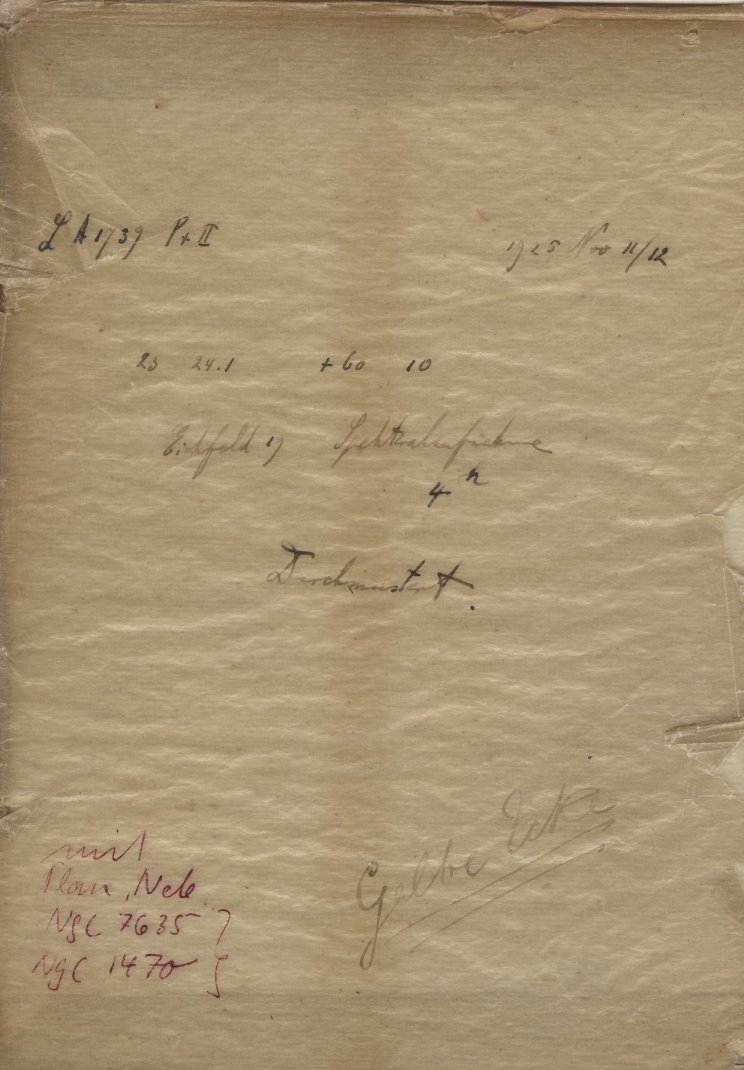 L A 1739 Pr II 1925 Nov 11/12
23 24.1 +60 10
Eichfeld 19 Spektralaufnahme
4 h
Durchmustert.
Gelbe Ecke
mit
Plan. Neb
NGC 7635 }
NGC 1470 }